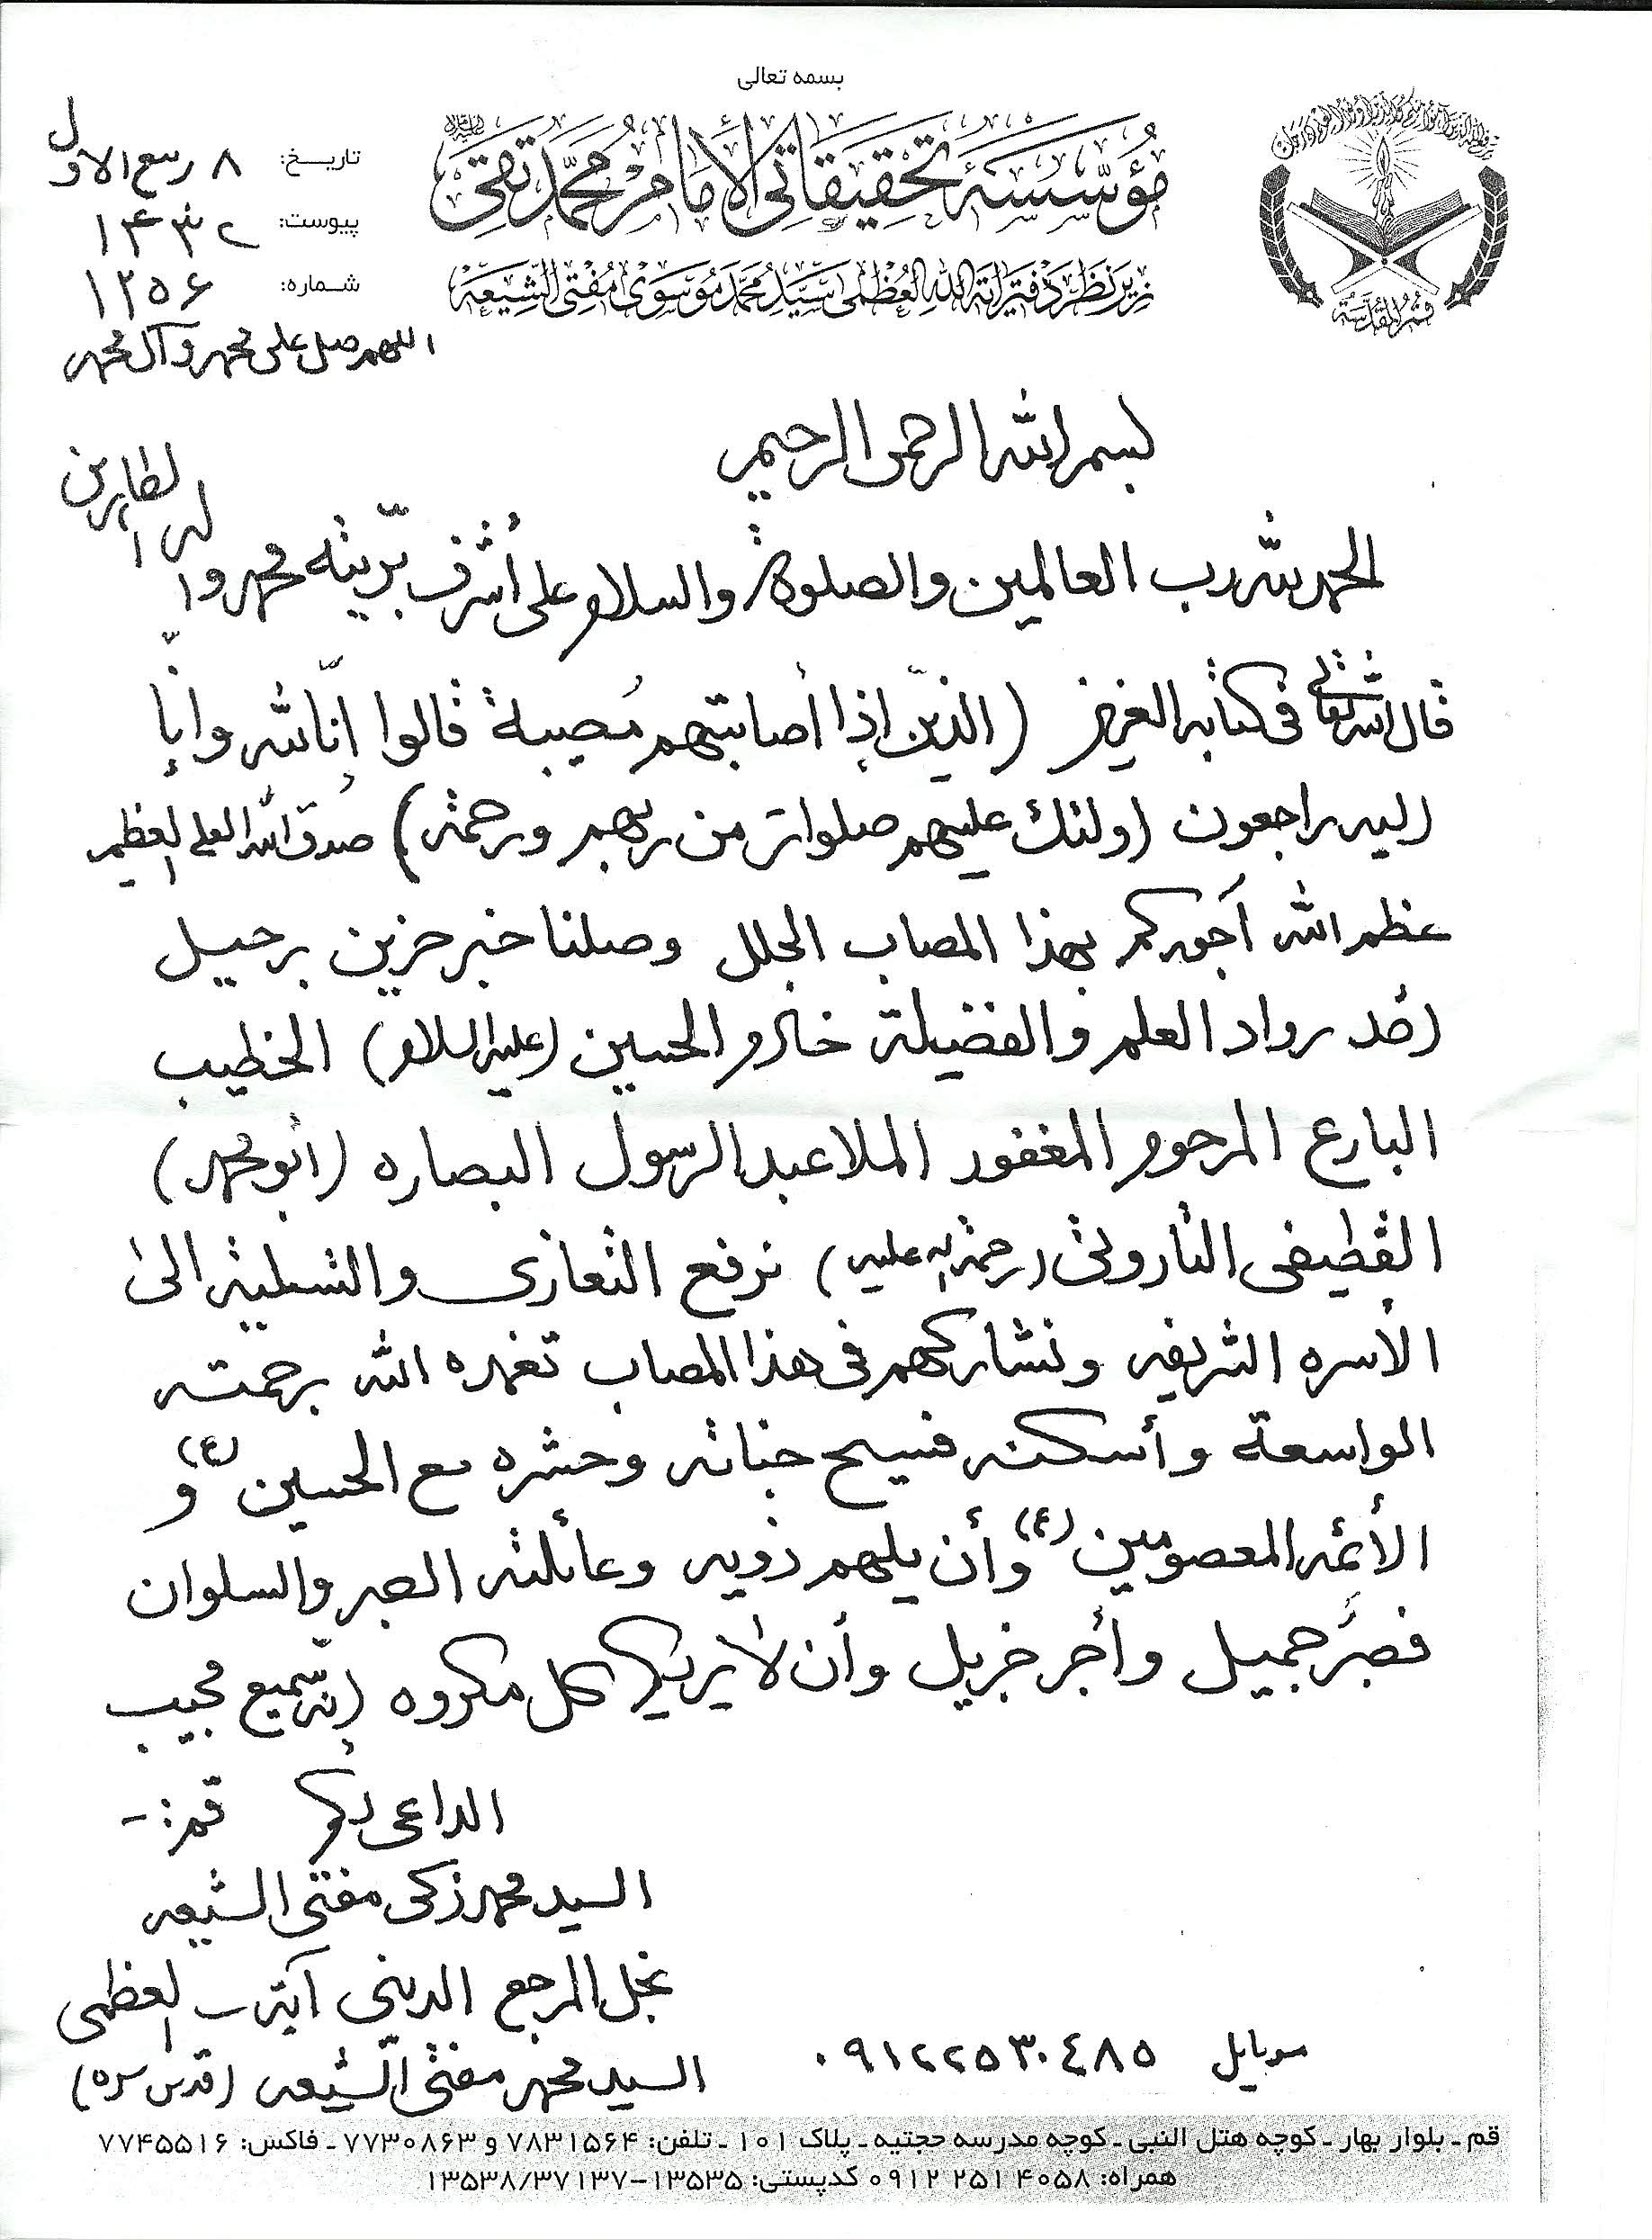 بسمه تعالی
مؤسسة تحقیقاتی الامام محمد تقی
زیر نظر دفتر آیة الله العظمی سید محمد موسوی مفتی الشیعه
قم المقدسة
تاریخ: ۸ ربیع الاول
پیوست: ۱۴۳۲
شماره: ۱۲۵۶
اللهم صل علی محمد وآل محمد
بسم الله الرحمن الرحیم
الحمد لله رب العالمین والصلوة والسلام علی أشرف بریته محمد وآله الطاهرین
قال الله تعالی فی کتابه العزیز (الذین إذا أصابتهم مُصیبة قالوا إنّا لله وإنّا
إلیه راجعون اولئک علیهم صلوات من ربهم ورحمة) صدق الله العلی العظیم
عظم الله أجورکم بهذا المصاب الجلل وصلنا خبر حزین برحیل
أحد رواد العلم والفضیلة خادم الحسین (علیه السلام) الخطیب
البارع المرحوم المغفور الملا عبد الرسول البصاره (أبو محمد)
القطیفی التاروتی (رحمة الله علیه) نرفع التعازی والتسلیة الی
الأسره الشریفه ونشارکهم فی هذا المصاب تغمده الله برحمته
الواسعة وأسکنه فسیح جناته وحشره مع الحسین (ع) و
الأئمه المعصومین (ع) وأن یلهم ذویه وعائلته الصبر والسلوان
فصبرٌ جمیل وأجر جزیل وأن لا یریکم کل مکروه إنه سمیع مجیب
الداعی لکم قم:-
السید محمد زکی مفتی الشیعه
نجل المرجع الدینی آیة الله العظمی
السید محمد مفتی الشیعه (قدس سره)
موبایل ۰۹۱۲۲۵۳۰٤۸۵
قم ـ بلوار بهار ـ کوچه هتل النبی ـ کوچه مدرسه حجتیه ـ پلاک ۱۰۱ ـ تلفن: ۷۸۳۱۵۶۴ و ۷۷۳۰۸۶۳ ـ فاکس: ۷۷۴۵۵۱۶
همراه: ۰۹۱۲ ۲۵۱ ۴۰۵۸ کدپستی: ۱۳۵۳۵-۱۳۵۳۸/۳۷۱۳۷